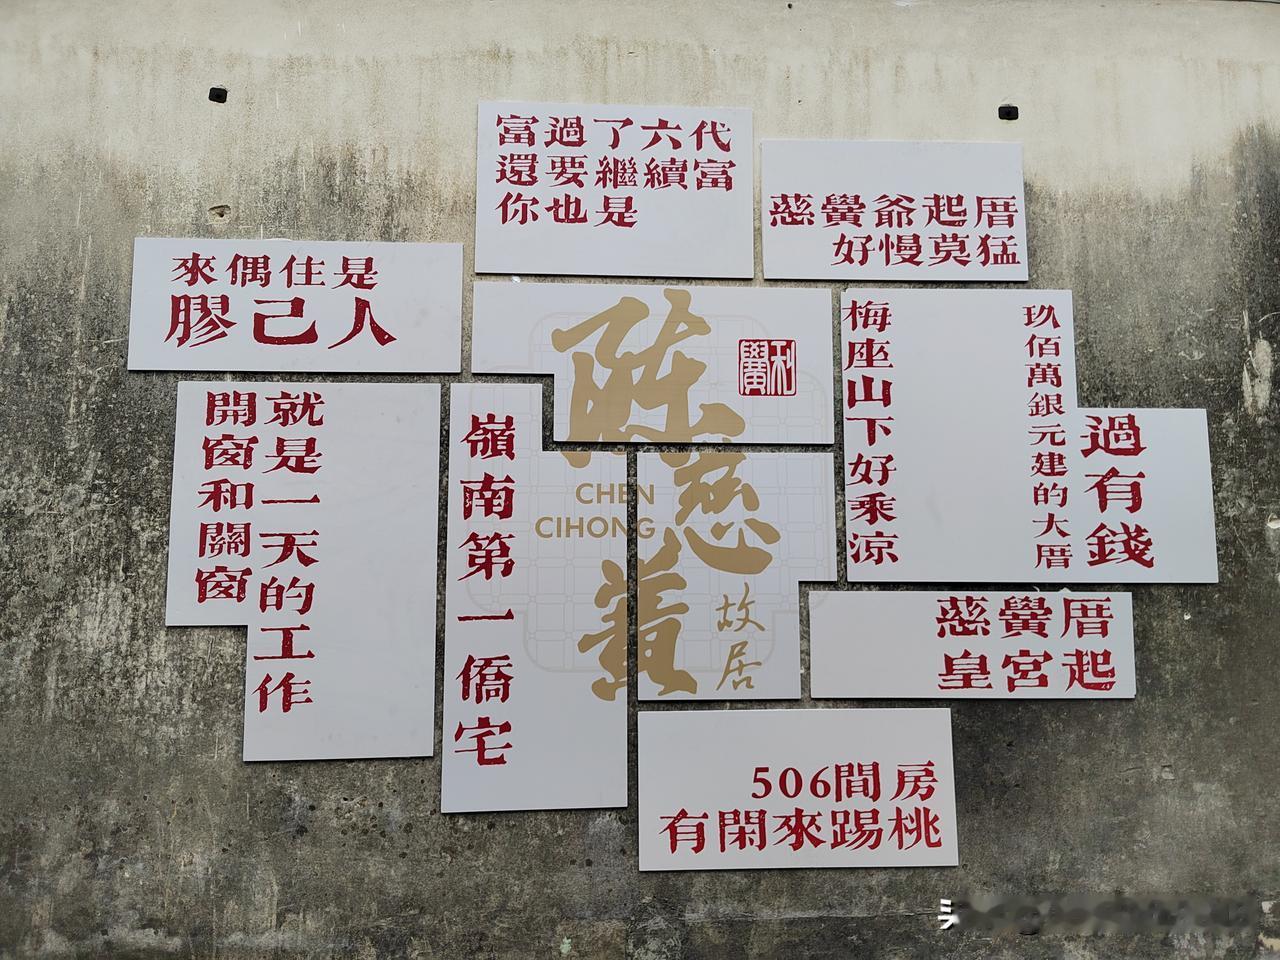 富過了六代
還要繼續富
你也是
慈黌爺起厝
好慢莫猛
來偶住是
膠己人
陈慈黉
故居
CHEN
CIHONG
梅座山下好乘涼
玖佰萬銀元建的大厝
過有錢
就是一天的工作
開窗和關窗
嶺南第一僑宅
慈黌厝
皇宮起
506間房
有閑來踢桃